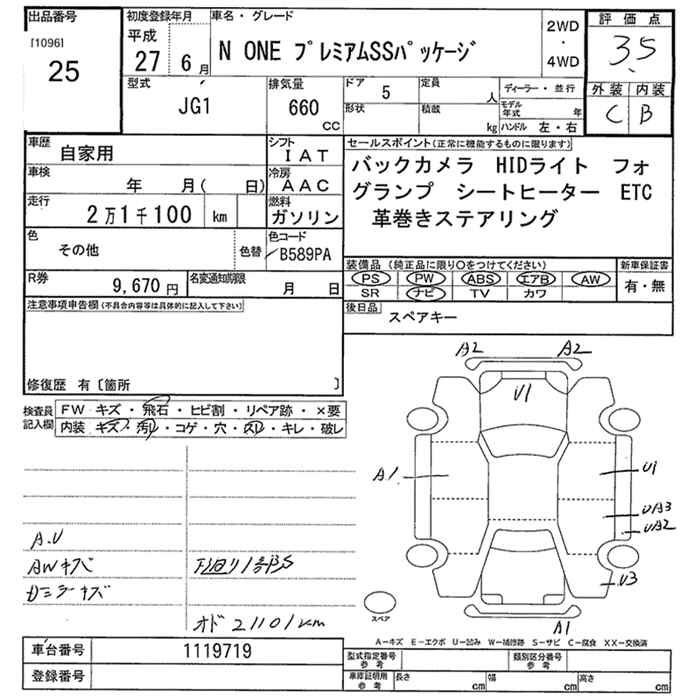 出品番号
[1096]
25
初度登録年月
平成
27 6 月
車名・グレード
N ONE プレミアムSSパッケージ
2WD
・
4WD
評価点
3.5
外装 内装
C B
型式
JG1
排気量
660
CC
ドア 5
形状
定員 人
積載 kg
ディーラー・並行
モデル年式 年
ハンドル 左・右
車歴
自家用
シフト
IAT
車検
年 月( 日)
冷房
AAC
走行
2万1千100 km
燃料
ガソリン
色
その他
色替
色コード
B589PA
R券
9,670 円
名変通知期限
月 日
セールスポイント(正常に機能するものに限ります)
バックカメラ HIDライト フォ
グランプ シートヒーター ETC
革巻きステアリング
装備品(純正品に限り○をつけてください)
PS PW ABS エアB AW
SR ナビ TV カワ
新車保証書
有・無
後日品
スペアキー
注意事項申告欄(不具合内容等は具体的に記入して下さい)
修復歴 有〔箇所 〕
検査員
記入欄
FW キズ・飛石・ヒビ割・リペア跡・×要
内装 キズ・汚れ・コゲ・穴・スレ・キレ・破レ
A2 A2
U1
A1
U1
UA3
UA2
U3
A1
A.U
AWキズ
下回り1部S
オド 21101km
スペア
A-キズ E-エクボ U-凹み W-補修跡 S-サビ C-腐食 XX-交換済
車台番号
1119719
登録番号
型式指定番号
参考
類別区分番号
参考
車庫証明用
参考
長さ cm
幅 cm
高さ cm